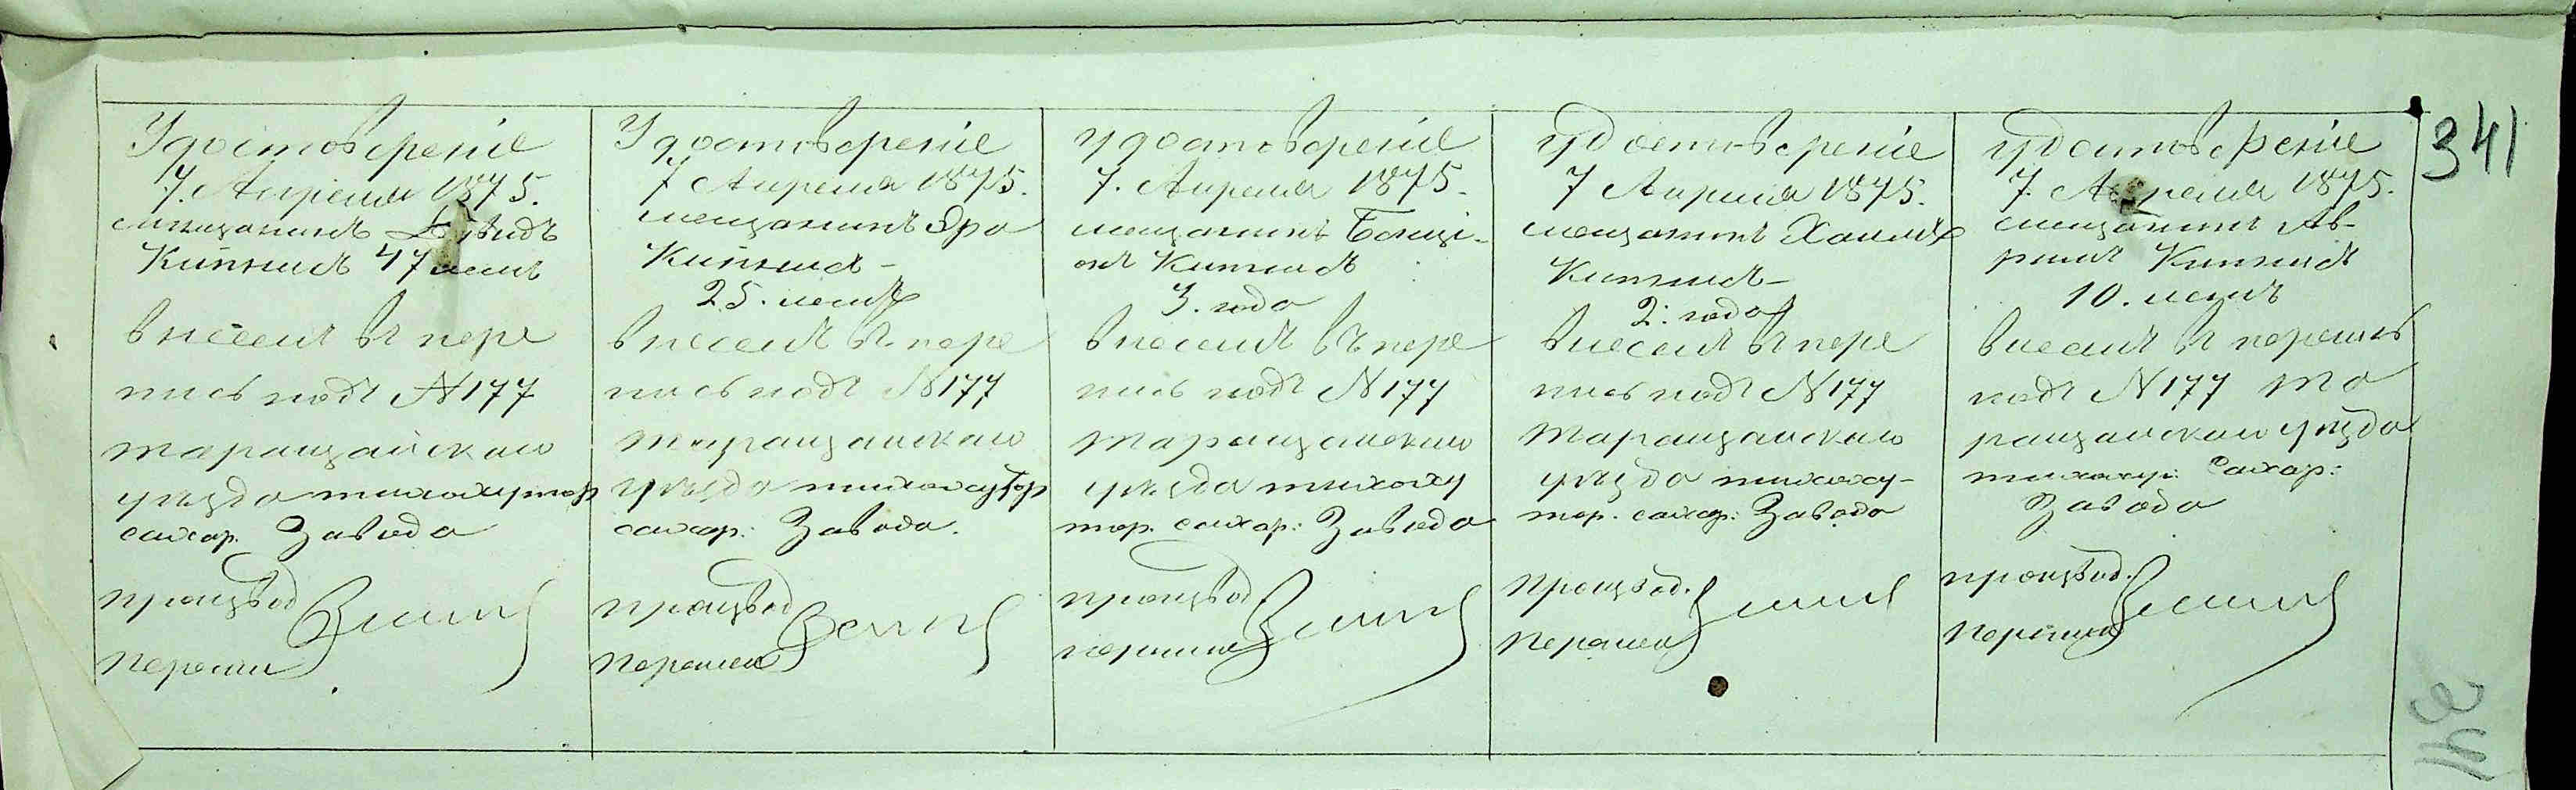 341
Удостоверенiе
7. Апреля 1875.
мещанинъ Давидъ
Кипнисъ 47 летъ
внесенъ въ пере
пись подъ N 177
таращанскаго
уезда тихохутор
сахар. Завода
производ
переписи
Удостоверенiе
7 Апреля 1875.
мещанинъ Эра
Кипнисъ -
25. летъ
внесенъ въ пере
пись подъ N 177
таращанскаго
уезда тихохутор
сахар: Завода.
производ
переписи
Удостоверенiе
7. Апреля 1875.
мещанинъ Бенцi-
онъ Кипнисъ
3. года
внесенъ въ пере
пись подъ N 177
таращанскаго
уезда тихоху
тор. сахар: Завода
производ
переписи
Удостоверенiе
7 Апреля 1875.
мещанинъ Хаимъ
Кипнисъ -
2: года
внесенъ въ пере
пись подъ N 177
таращанскаго
уезда тихоху-
тор. сахар: Завода
производ.
переписи
Удостоверенiе
7. Апреля 1875.
мещанинъ Ав-
румъ Кипнисъ
10. летъ
внесенъ въ перепись
подъ N 177 та
ращанскаго уезда
тихохур: Сахар:
Завода
производ.
переписи
341